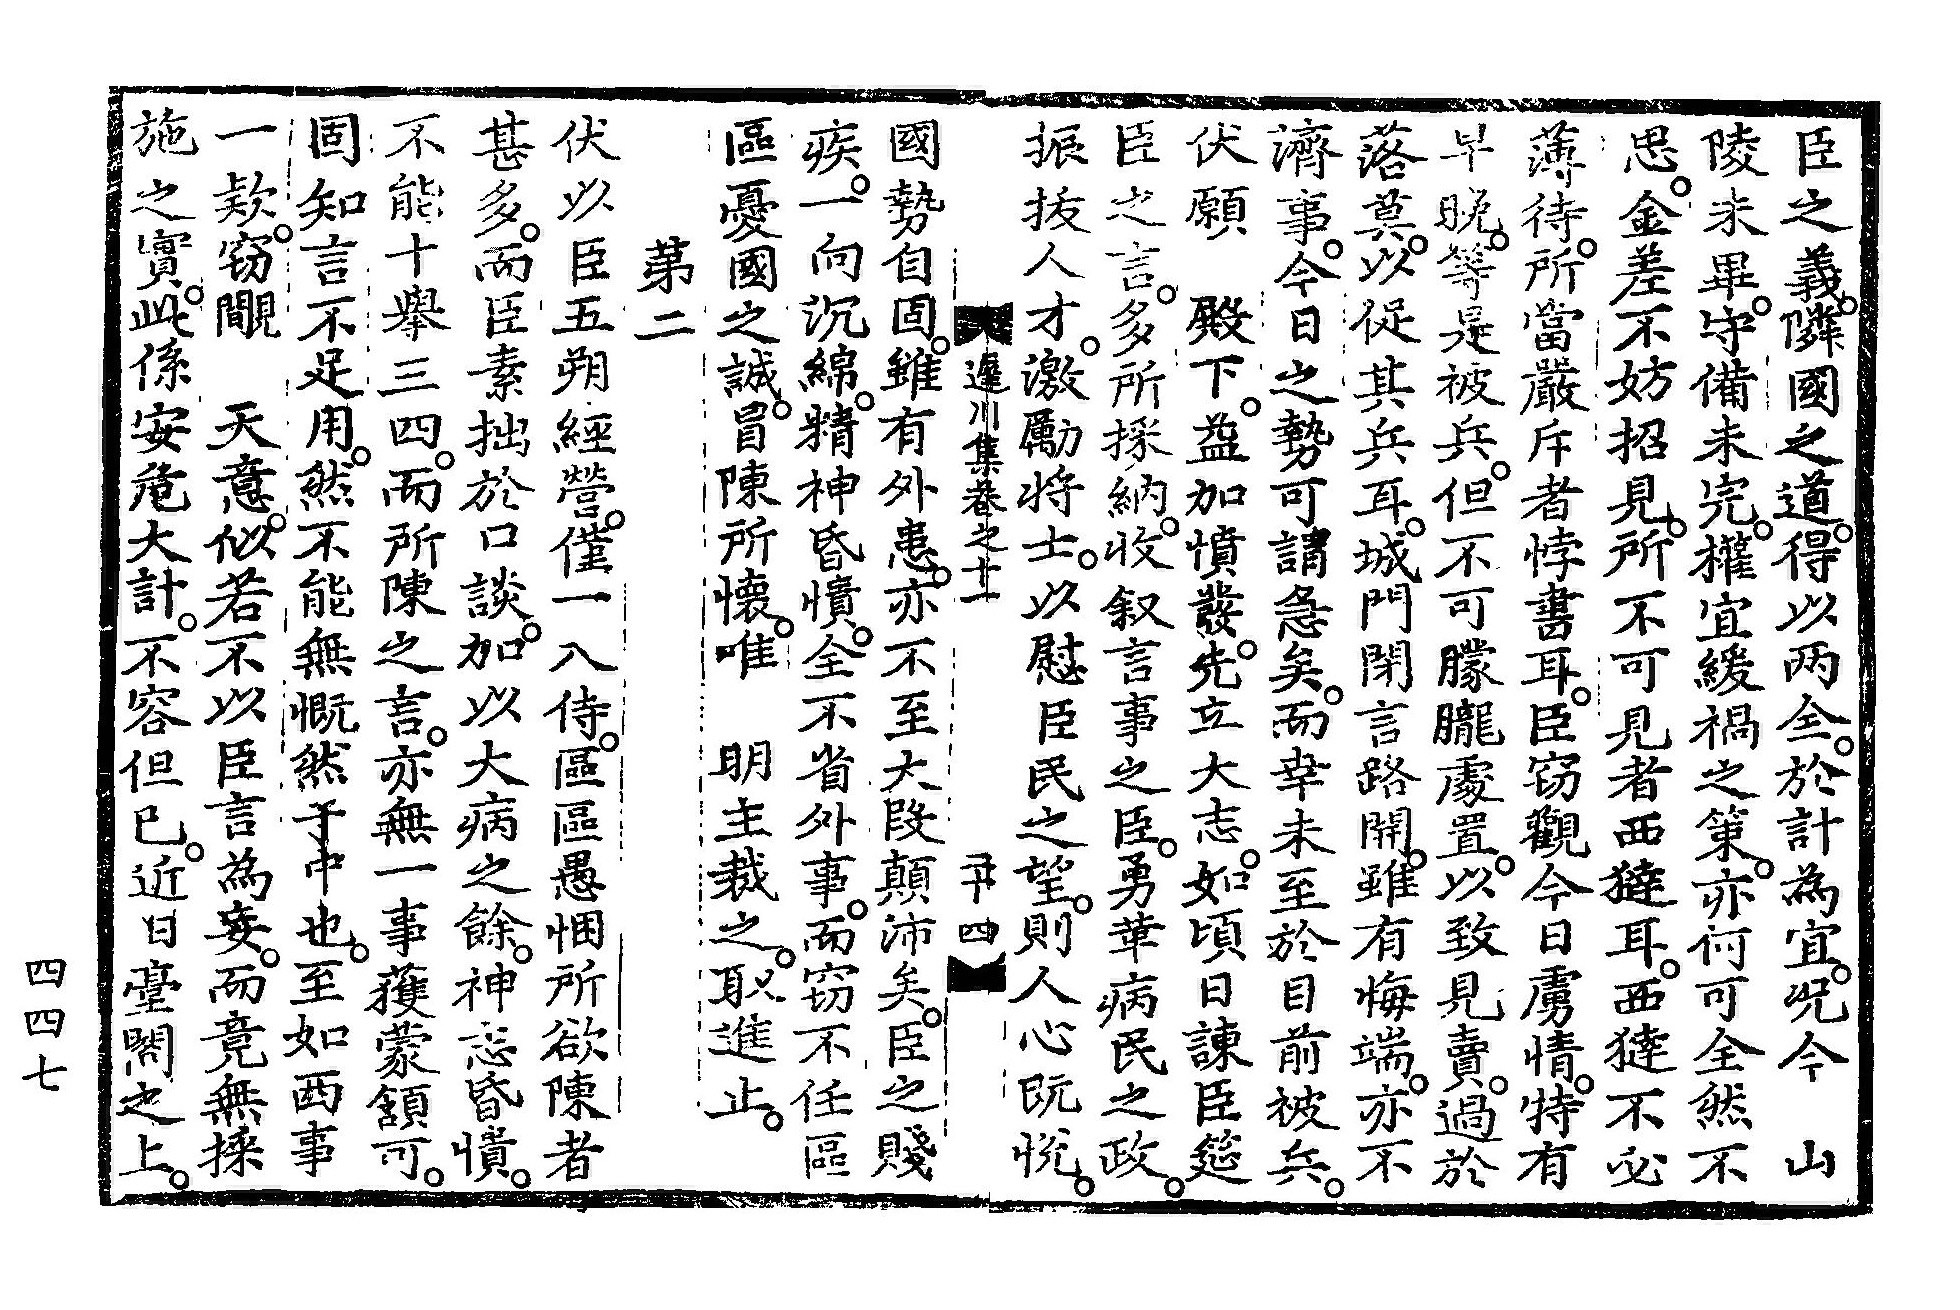 臣之義。隣國之道。得以两全。於計為宜。况今 山
陵未畢。守備未完。權宜緩禍之策。亦何可全然不
思。金差不妨招見。所不可見者西㺚耳。西㺚不必
薄待。所當嚴斥者悖書耳。臣窃觀今日虜情。特有
早晚。等是被兵。但不可朦朧處置。以致見賣。過於
落莫。以促其兵耳。城門閉言路開。雖有悔端。亦不
濟事。今日之勢可謂急矣。而幸未至於目前被兵。
伏願 殿下。益加憤發。先立大志。如頃日諫臣筵
臣之言。多所採納。收叙言事之臣。勇革病民之政。
振拔人才。激勵將士。以慰臣民之望。則人心既悅。
遲川集卷之十一 二十四
國勢自固。雖有外患。亦不至大段顛沛矣。臣之賤
疾。一向沉綿。精神昏憒。全不省外事。而窃不任區
區憂國之誠。冒陳所懷。唯 明主裁之。取進止。
第二
伏以臣五朔經營。僅一入侍。區區愚悃所欲陳者
甚多。而臣素拙於口談。加以大病之餘。神志昏憒。
不能十舉三四。而所陳之言。亦無一事獲蒙頷可。
固知言不足用。然不能無慨然于中也。至如西事
一款。窃覸 天意。似若不以臣言為妄。而竟無採
施之實。此係安危大計。不容但已。近日臺閣之上。
四四七